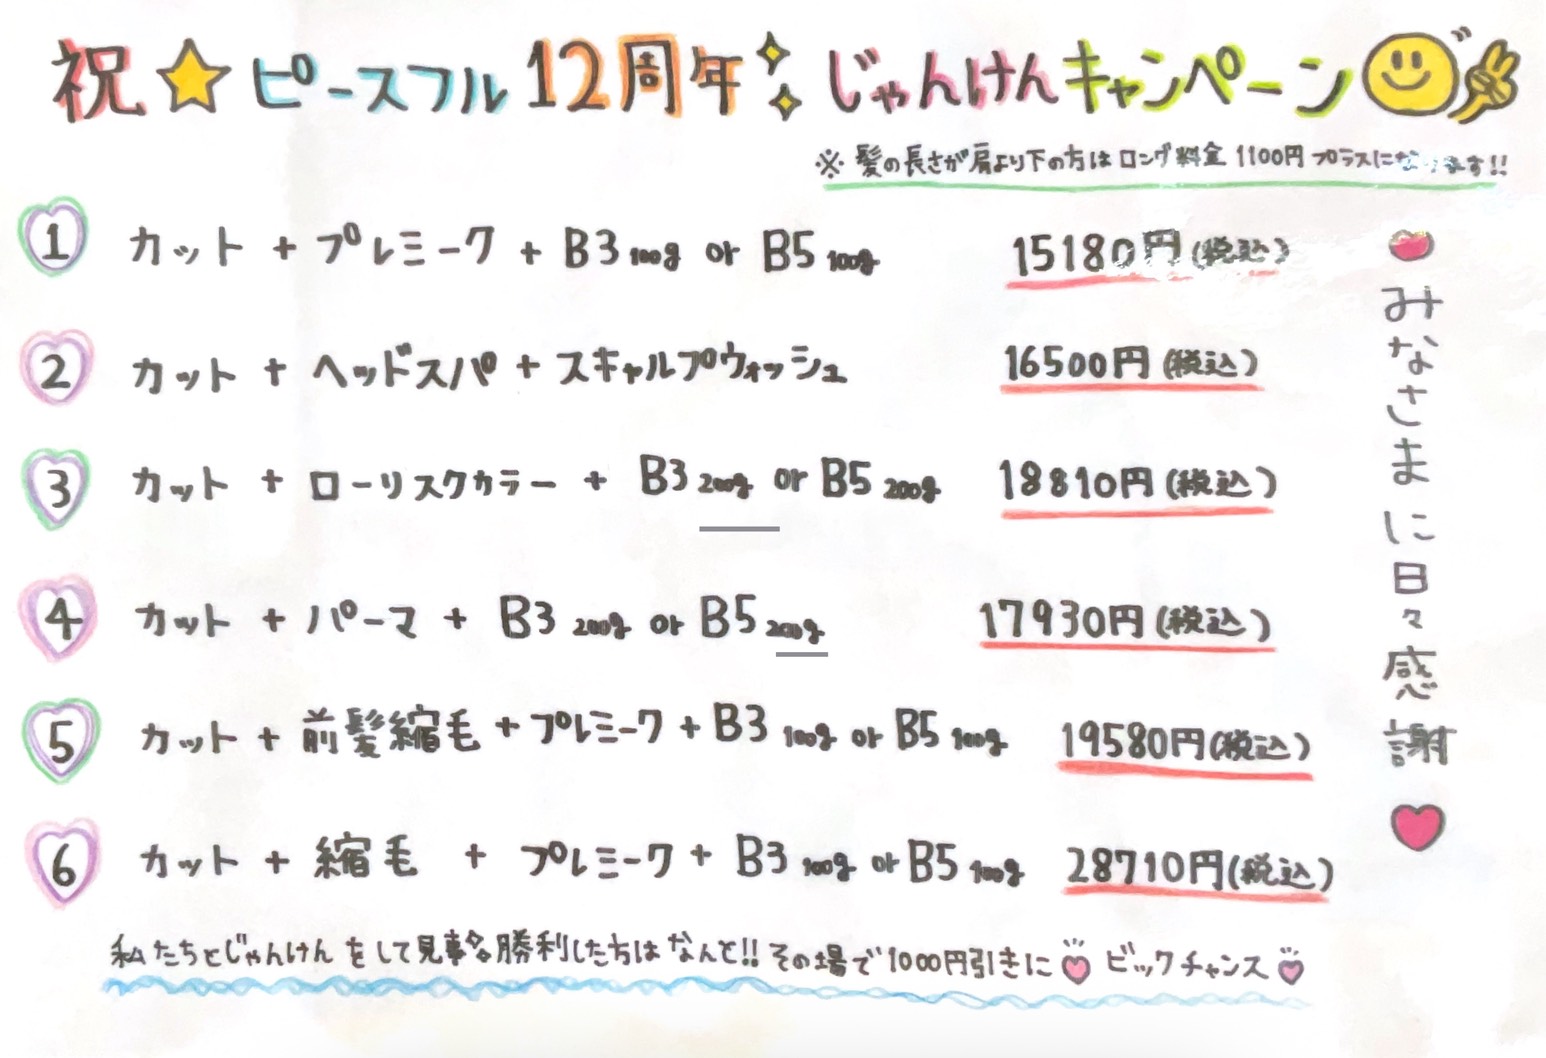 祝☆ピースフル12周年 じゃんけんキャンペーン
※髪の長さが肩より下の方はロング料金1100円プラスになります!!
① カット + プレミーク + B3 100g or B5 100g 15180円(税込)
② カット + ヘッドスパ + スキャルプウォッシュ 16500円(税込)
③ カット + ローリスクカラー + B3 200g or B5 200g 18810円(税込)
④ カット + パーマ + B3 200g or B5 200g 17930円(税込)
⑤ カット + 前髪縮毛 + プレミーク + B3 100g or B5 100g 19580円(税込)
⑥ カット + 縮毛 + プレミーク + B3 100g or B5 100g 28710円(税込)
私たちとじゃんけんをして見事勝利した方はなんと!!その場で1000円引きに♡ビックチャンス♡
♥みなさまに日々感謝♥